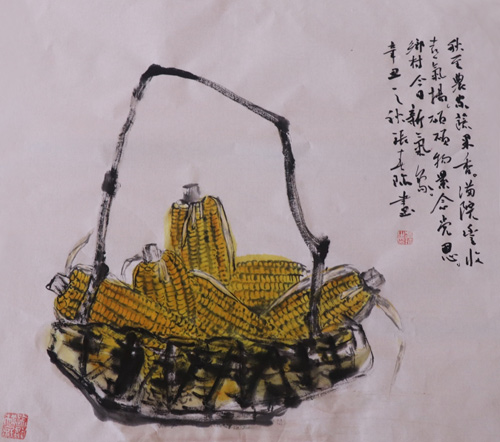 秋至農家蔬果香滿院豐收
喜氣揚碩碩物景念党恩
鄉村今日新氣象
辛丑之秋張春畫